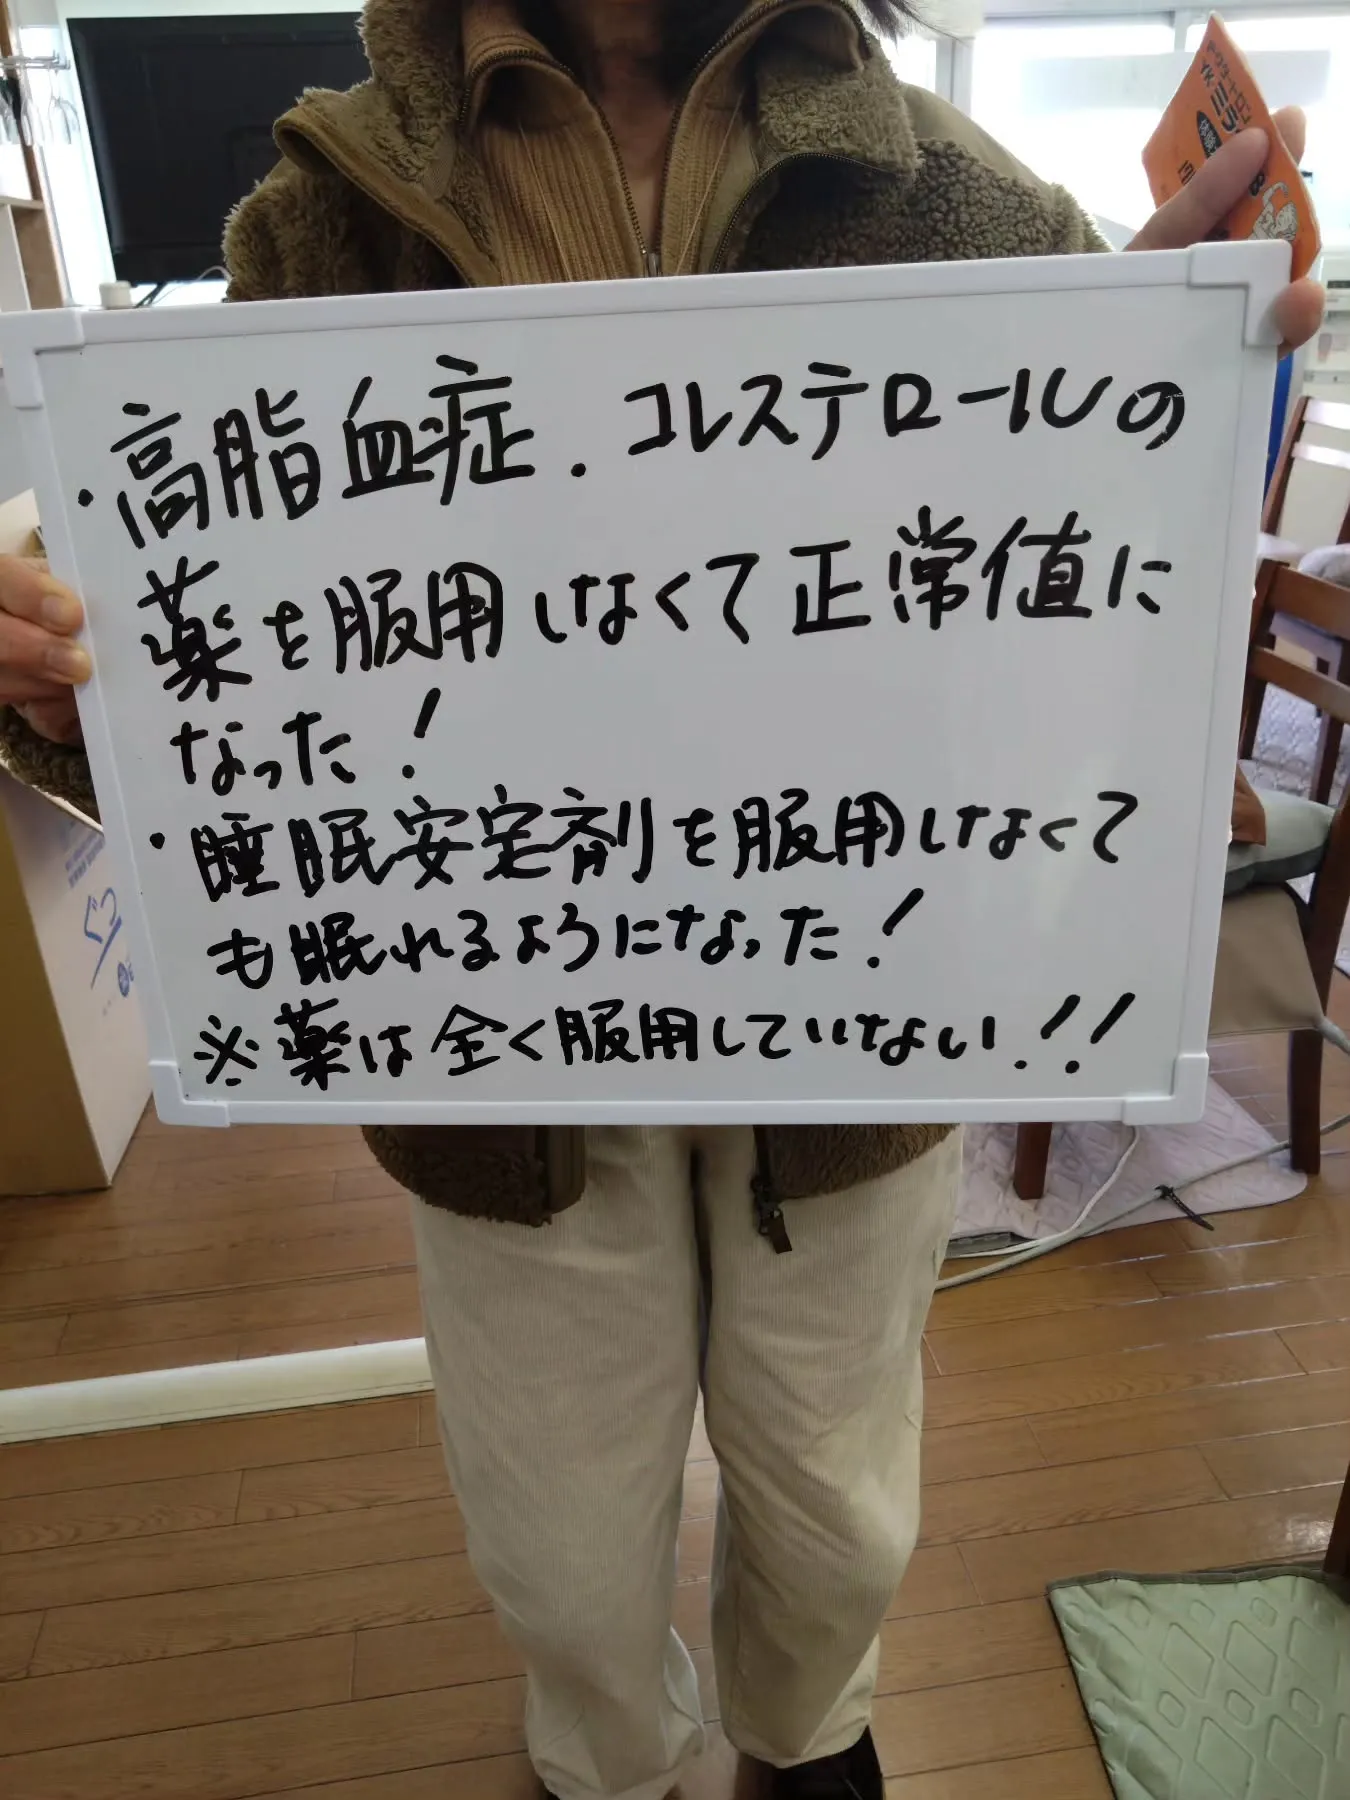 ・高脂血症.コレステロールの
薬を服用しなくて正常値に
なった!
・睡眠安定剤を服用しなくて
も眠れるようになった!
※薬は全く服用していない!!
ドクタートロン
YK-ミラ
体験